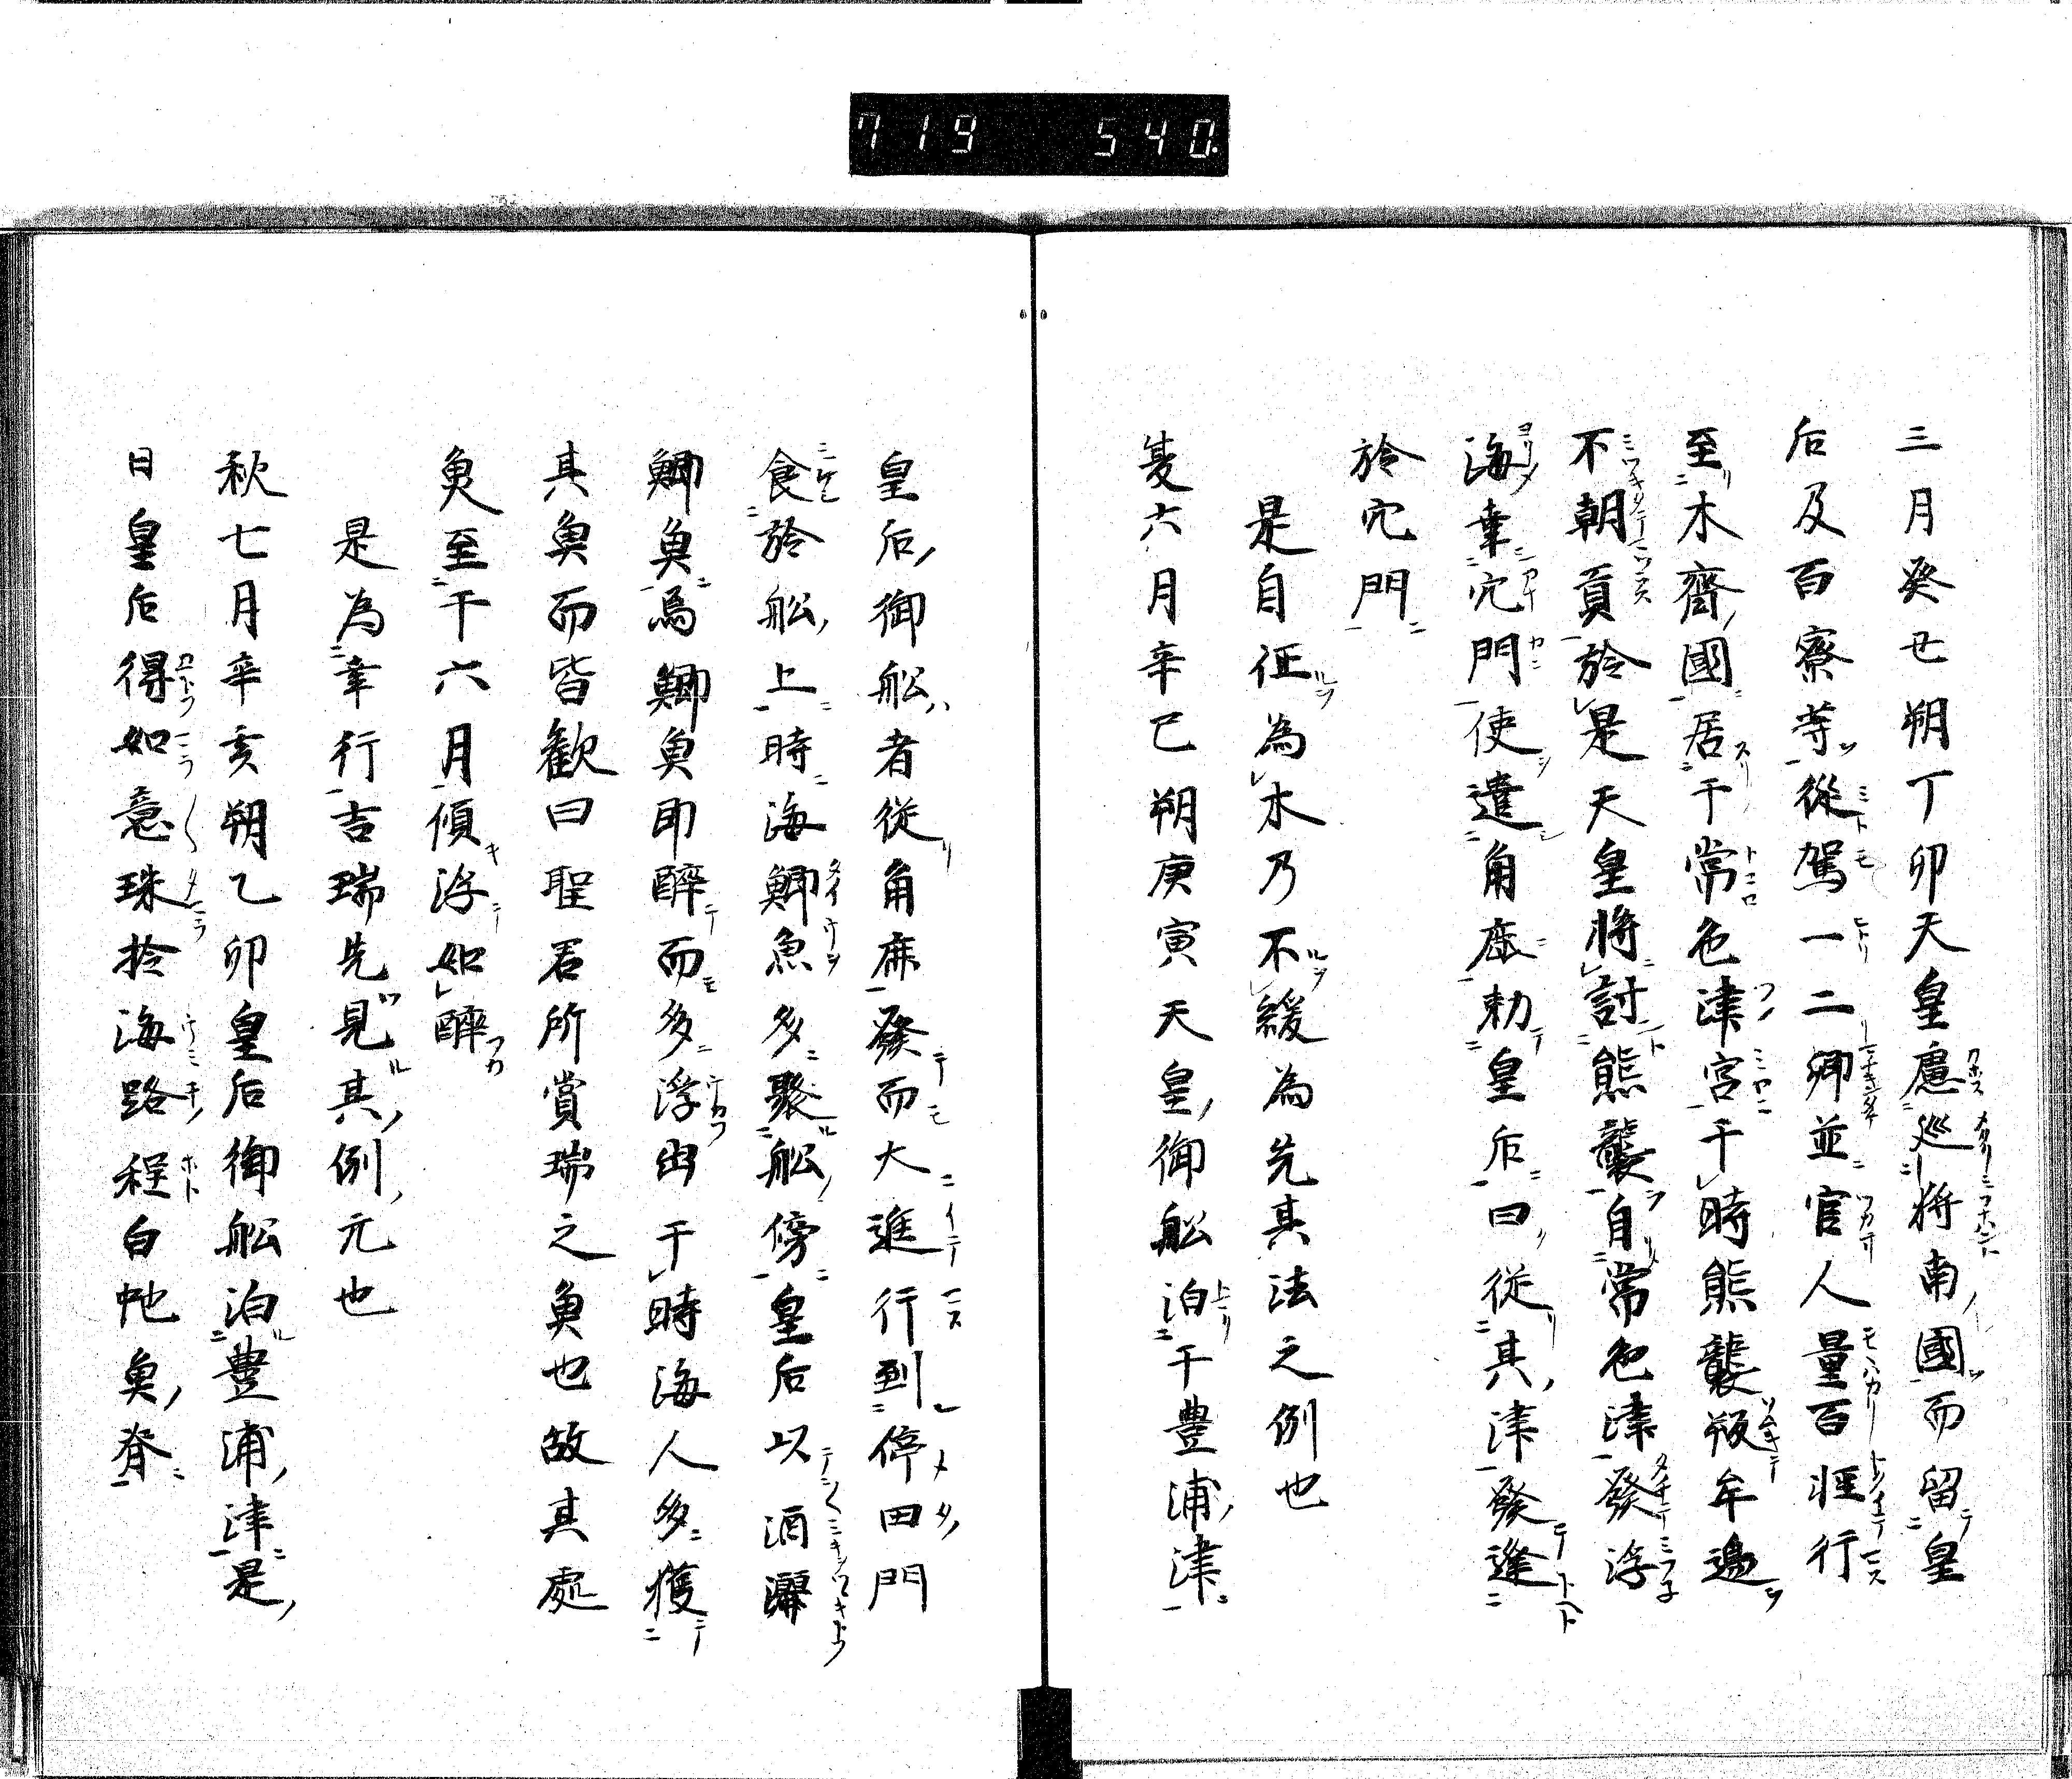 719 540.
三月癸丑朔丁卯天皇慮巡将南國而留皇
后及百寮等從駕一二卿並官人量百​班行
至木齊國居于常色津宮于時熊襲叛牟邊
不朝貢於是天皇將討熊襲自常色津發浮
海幸穴門使遣角鹿勅皇后曰從其津發逢
於穴門
是自征為木乃不緩為先其法之例也
夏六月辛巳朔庚寅天皇御舩泊于豊浦津
皇后御舩者従角鹿發而大進行到停田門
食於舩上時海鯽魚多聚舩傍皇后以酒灑
鯽魚焉鯽魚即醉而多浮出于時海人多獲
其魚而皆歓曰聖君所賞瑞之魚也故其處
魚至于六月傾浮如醉
是為幸行吉瑞先見其例元也
秋七月辛亥朔乙卯皇后御舩泊豊浦津是
日皇后得如意珠於海路程白虵魚脊